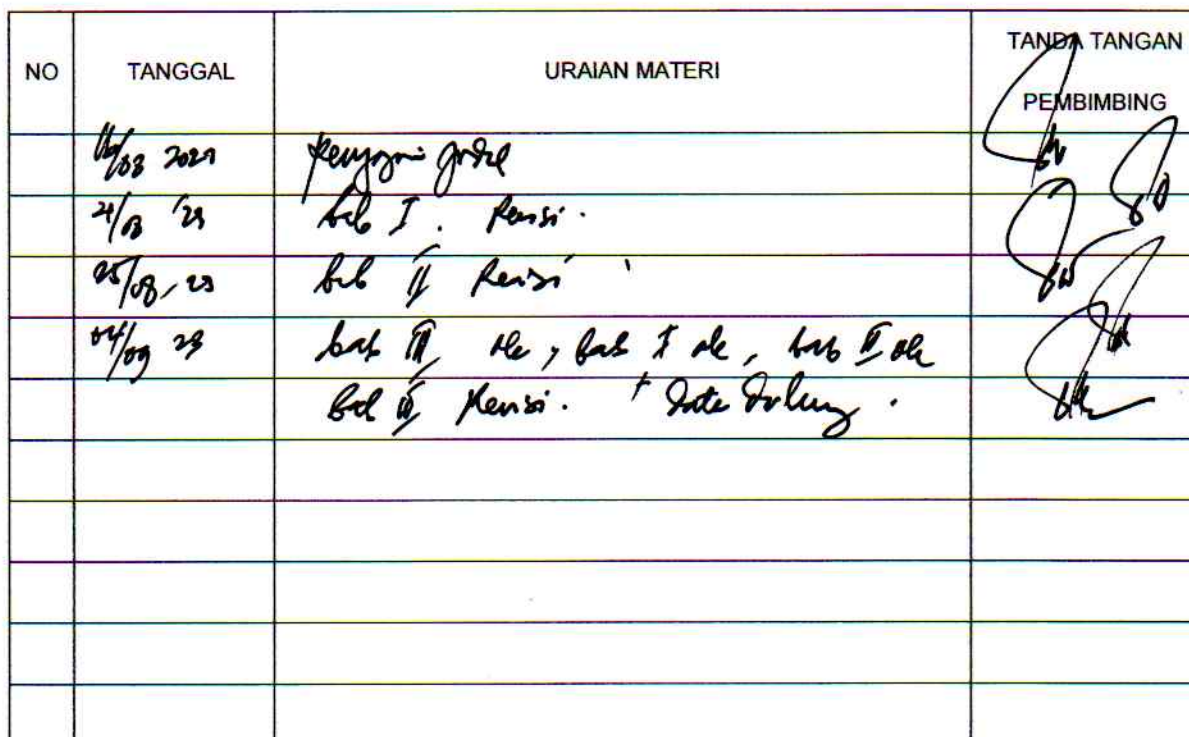 NO TANGGAL URAIAN MATERI TANDA TANGAN
PEMBIMBING
/08 2023 judul
21/08 '23 bab I. Revisi.
25/08, 23 bab II Revisi
04/09 23 bab III ok, bab I ok, bab II ok
bab Revisi. + Data